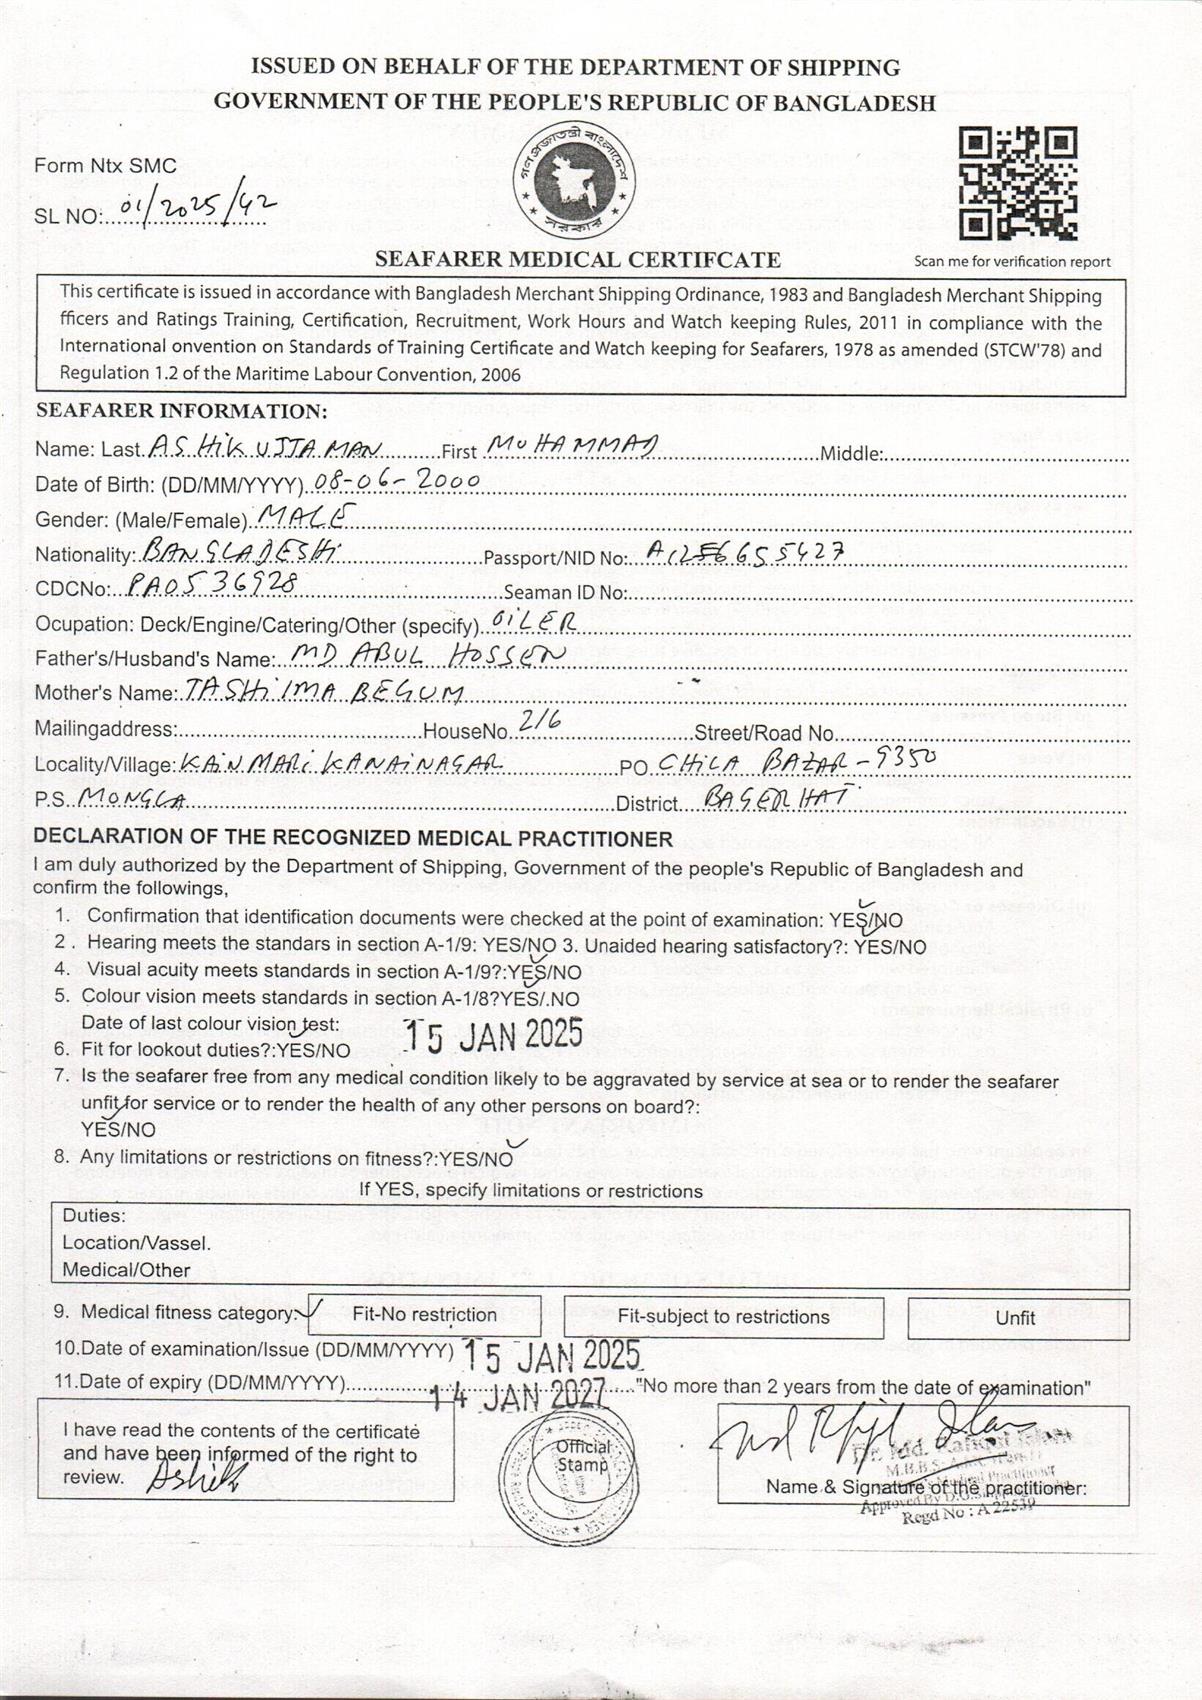 ISSUED ON BEHALF OF THE DEPARTMENT OF SHIPPING
GOVERNMENT OF THE PEOPLE'S REPUBLIC OF BANGLADESH
গণ প্রজাতন্ত্রী বাংলাদেশ
সরকার
Form Ntx SMC
SL NO: 01/2025/42
SEAFARER MEDICAL CERTIFCATE
Scan me for verification report
This certificate is issued in accordance with Bangladesh Merchant Shipping Ordinance, 1983 and Bangladesh Merchant Shipping
fficers and Ratings Training, Certification, Recruitment, Work Hours and Watch keeping Rules, 2011 in compliance with the
International onvention on Standards of Training Certificate and Watch keeping for Seafarers, 1978 as amended (STCW'78) and
Regulation 1.2 of the Maritime Labour Convention, 2006
SEAFARER INFORMATION:
Name: Last. ASHIK UJJAMAN First MUHAMMAD Middle:
Date of Birth: (DD/MM/YYYY) 08-06-2000
Gender: (Male/Female) MALE
Nationality: BANGLADESHI Passport/NID No:
CDCNo: PA0536928 Seaman ID No:
Ocupation: Deck/Engine/Catering/Other (specify) OILER
Father's/Husband's Name: MD ABUL HOSSEN
Mother's Name: TASHIIMA BEGUM
Mailingaddress: HouseNo. 216 Street/Road No.
Locality/Village: KAINMARI KANAINAGAR PO CHILA BAZAR-9350
P.S. MONGLA District BAGERHAT
DECLARATION OF THE RECOGNIZED MEDICAL PRACTITIONER
I am duly authorized by the Department of Shipping, Government of the people's Republic of Bangladesh and
confirm the followings,
1. Confirmation that identification documents were checked at the point of examination: YES/NO
2 . Hearing meets the standars in section A-1/9: YES/NO 3. Unaided hearing satisfactory?: YES/NO
4. Visual acuity meets standards in section A-1/9?:YES/NO
5. Colour vision meets standards in section A-1/8?YES/.NO
Date of last colour vision test: 15 JAN 2025
6. Fit for lookout duties?:YES/NO
7. Is the seafarer free from any medical condition likely to be aggravated by service at sea or to render the seafarer
unfit for service or to render the health of any other persons on board?:
YES/NO
8. Any limitations or restrictions on fitness?:YES/NO
If YES, specify limitations or restrictions
Duties:
Location/Vassel.
Medical/Other
9. Medical fitness category: Fit-No restriction Fit-subject to restrictions Unfit
10.Date of examination/Issue (DD/MM/YYYY) 15 JAN 2025
11.Date of expiry (DD/MM/YYYY) 14 JAN 2027 "No more than 2 years from the date of examination"
I have read the contents of the certificate
and have been informed of the right to
review. Ashik
Official
Stamp
Dr. Md. Rafiqul Islam
M.B.B.S.
Name & Signature of the practitioner:
Approved By D.G. Shipping
Regd No : A 22539